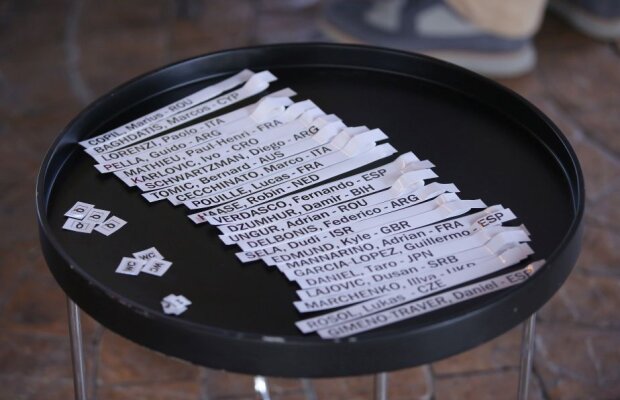 COPIL, Marius - ROU
BAGHDATIS, Marcos - CYP
LORENZI, Paolo - ITA
PELLA, Guido - ARG
MATHIEU, Paul Henri - FRA
KARLOVIC, Ivo - CRO
SCHWARTZMAN, Diego - ARG
TOMIC, Bernard - AUS
CECCHINATO, Marco - ITA
POUILLE, Lucas - FRA
HAASE, Robin - NED
VERDASCO, Fernando - ESP
DZUMHUR, Damir - BIH
UNGUR, Adrian - ROU
DELBONIS, Federico - ARG
SELA, Dudi - ISR
EDMUND, Kyle - GBR
MANNARINO, Adrian - FRA
GARCIA LOPEZ, Guillermo - ESP
DANIEL, Taro - JPN
LAJOVIC, Dusan - SRB
MARCHENKO, Illya - UKR
ROSOL, Lukas - CZE
GIMENO TRAVER, Daniel - ESP
Q
Q
Q
WC
WC